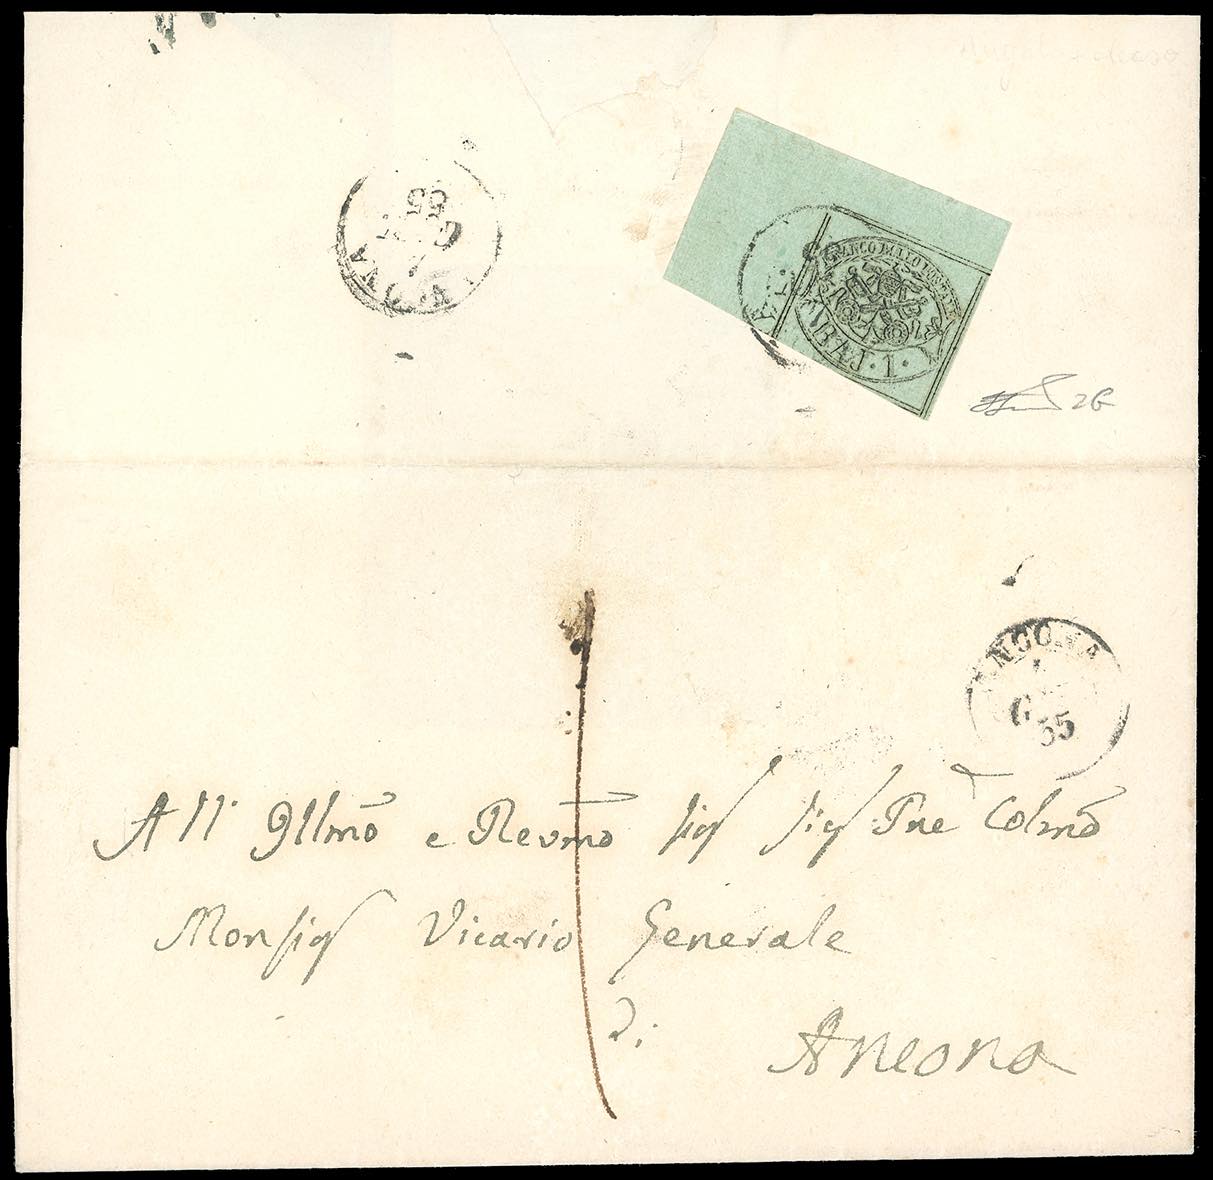 ANCONA
G
55
FRANCO BOLLO POSTALE
BAJ. 1.
2G
ANCONA
G
55
All' Illmõ e Revmõ Sig Sig Pnẽ Colmõ
Monsig Vicario Generale
di
Ancona